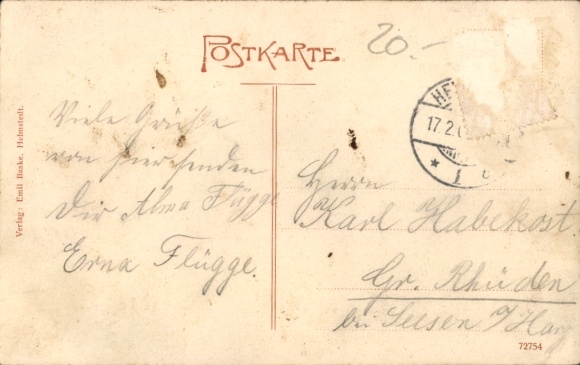 POSTKARTE
20.-
HE
17.2.
* 1
Viele Grüße
von hier senden
Dir Alma Flügge
Erna Flügge.
Herrn
Karl Habekost.
Gr. Rhüden
bei Seesen a/Harz
Verlag: Emil Baake, Helmstedt.
72754